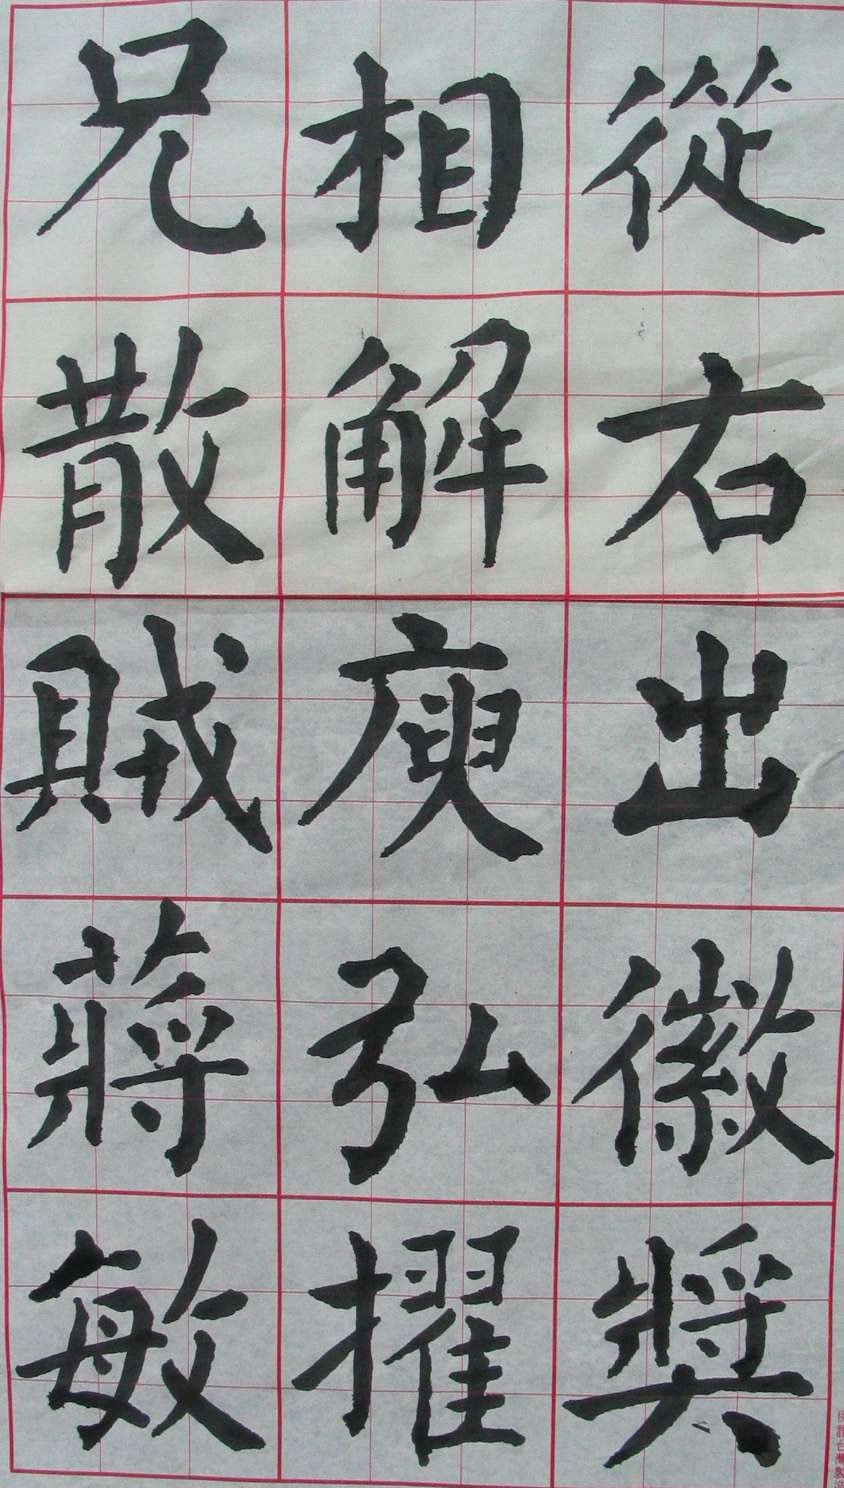 從右出徽獎
相解庾弘擢
兄散賊蔣敏